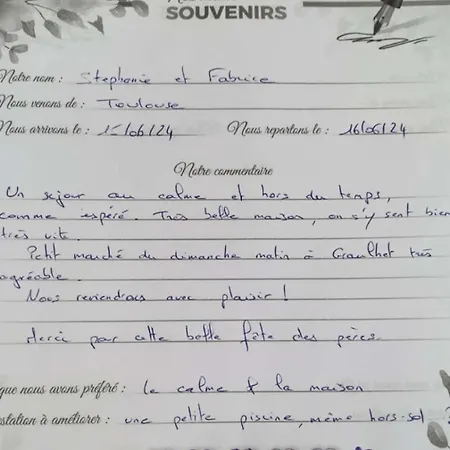 SOUVENIRS
Notre nom : Stephanie et Fabrice
Nous venons de : Toulouse
Nous arrivons le : 15/06/24 Nous repartons le : 16/06/24
Notre commentaire
Un sejour au calme et hors du temps,
comme espéré. Très belle maison, on s'y sent bien
très vite.
Petit marché du dimanche matin à Graulhet très
agréable.
Nous reviendrons avec plaisir !
Merci pour cette belle fête des pères.
que nous avons préféré : le calme & la maison
estation à améliorer : une petite piscine, même hors-sol